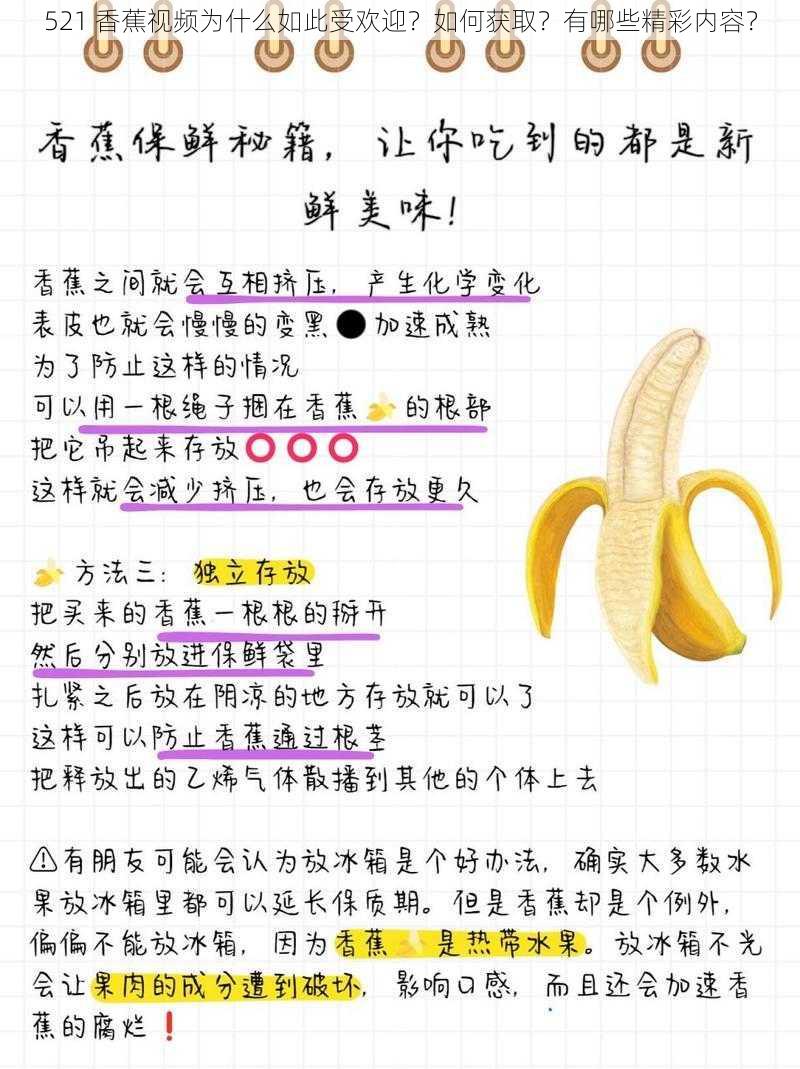 521 香蕉视频为什么如此受欢迎？如何获取？有哪些精彩内容？
香蕉保鲜秘籍，让你吃到的都是新
鲜美味！
香蕉之间就会互相挤压，产生化学变化
表皮也就会慢慢的变黑⚫加速成熟
为了防止这样的情况
可以用一根绳子捆在香蕉🍌的根部
把它吊起来存放⭕⭕⭕
这样就会减少挤压，也会存放更久
🍌方法三：独立存放
把买来的香蕉一根根的掰开
然后分别放进保鲜袋里
扎紧之后放在阴凉的地方存放就可以了
这样可以防止香蕉通过根茎
把释放出的乙烯气体散播到其他的个体上去
⚠有朋友可能会认为放冰箱是个好办法，确实大多数水
果放冰箱里都可以延长保质期。但是香蕉却是个例外，
偏偏不能放冰箱，因为香蕉🍌是热带水果。放冰箱不光
会让果肉的成分遭到破坏，影响口感，而且还会加速香
蕉的腐烂❗